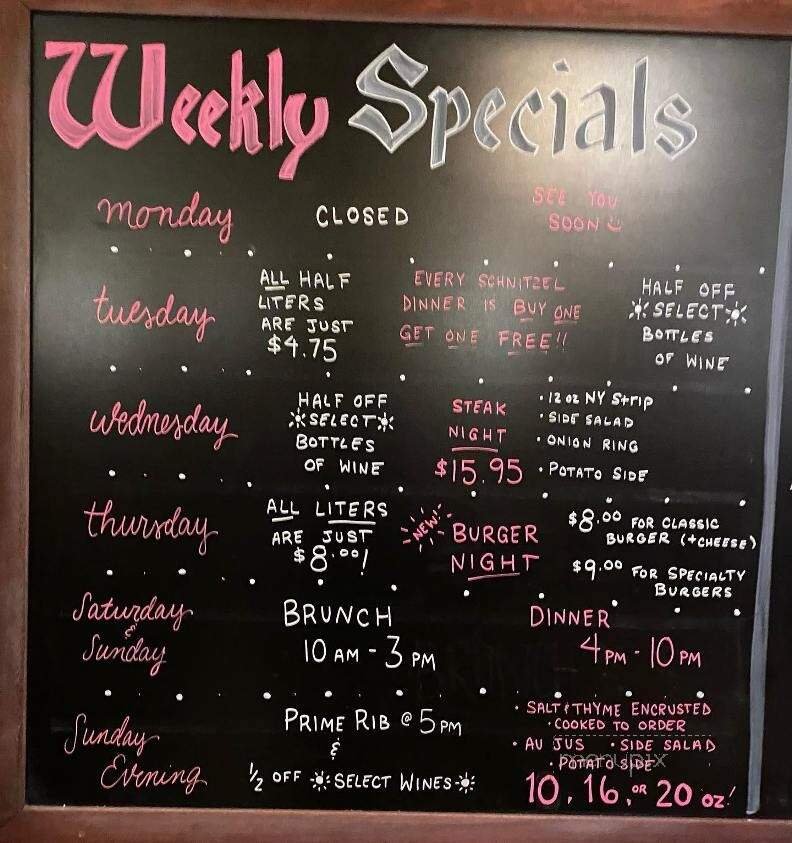 Weekly Specials
monday
CLOSED
SEE YOU
SOON
tuesday
ALL HALF
LITERS
ARE JUST
$4.75
EVERY SCHNITZEL
DINNER IS BUY ONE
GET ONE FREE!!
HALF OFF
SELECT
BOTTLES
OF WINE
wednesday
HALF OFF
SELECT
BOTTLES
OF WINE
STEAK
NIGHT
$15.95
• 12 oz NY STRIP
• SIDE SALAD
• ONION RING
• POTATO SIDE
thursday
ALL LITERS
ARE JUST
$8.00!
NEW!
BURGER
NIGHT
$8.00 FOR CLASSIC
BURGER (+CHEESE)
$9.00 FOR SPECIALTY
BURGERS
Saturday
&
Sunday
BRUNCH
10 AM - 3 PM
DINNER
4 PM - 10 PM
Sunday
Evening
PRIME RIB @ 5 PM
&
1/2 OFF SELECT WINES
• SALT & THYME ENCRUSTED
• COOKED TO ORDER
• AU JUS • SIDE SALAD
• POTATO SIDE
10, 16, OR 20 oz!
menupix